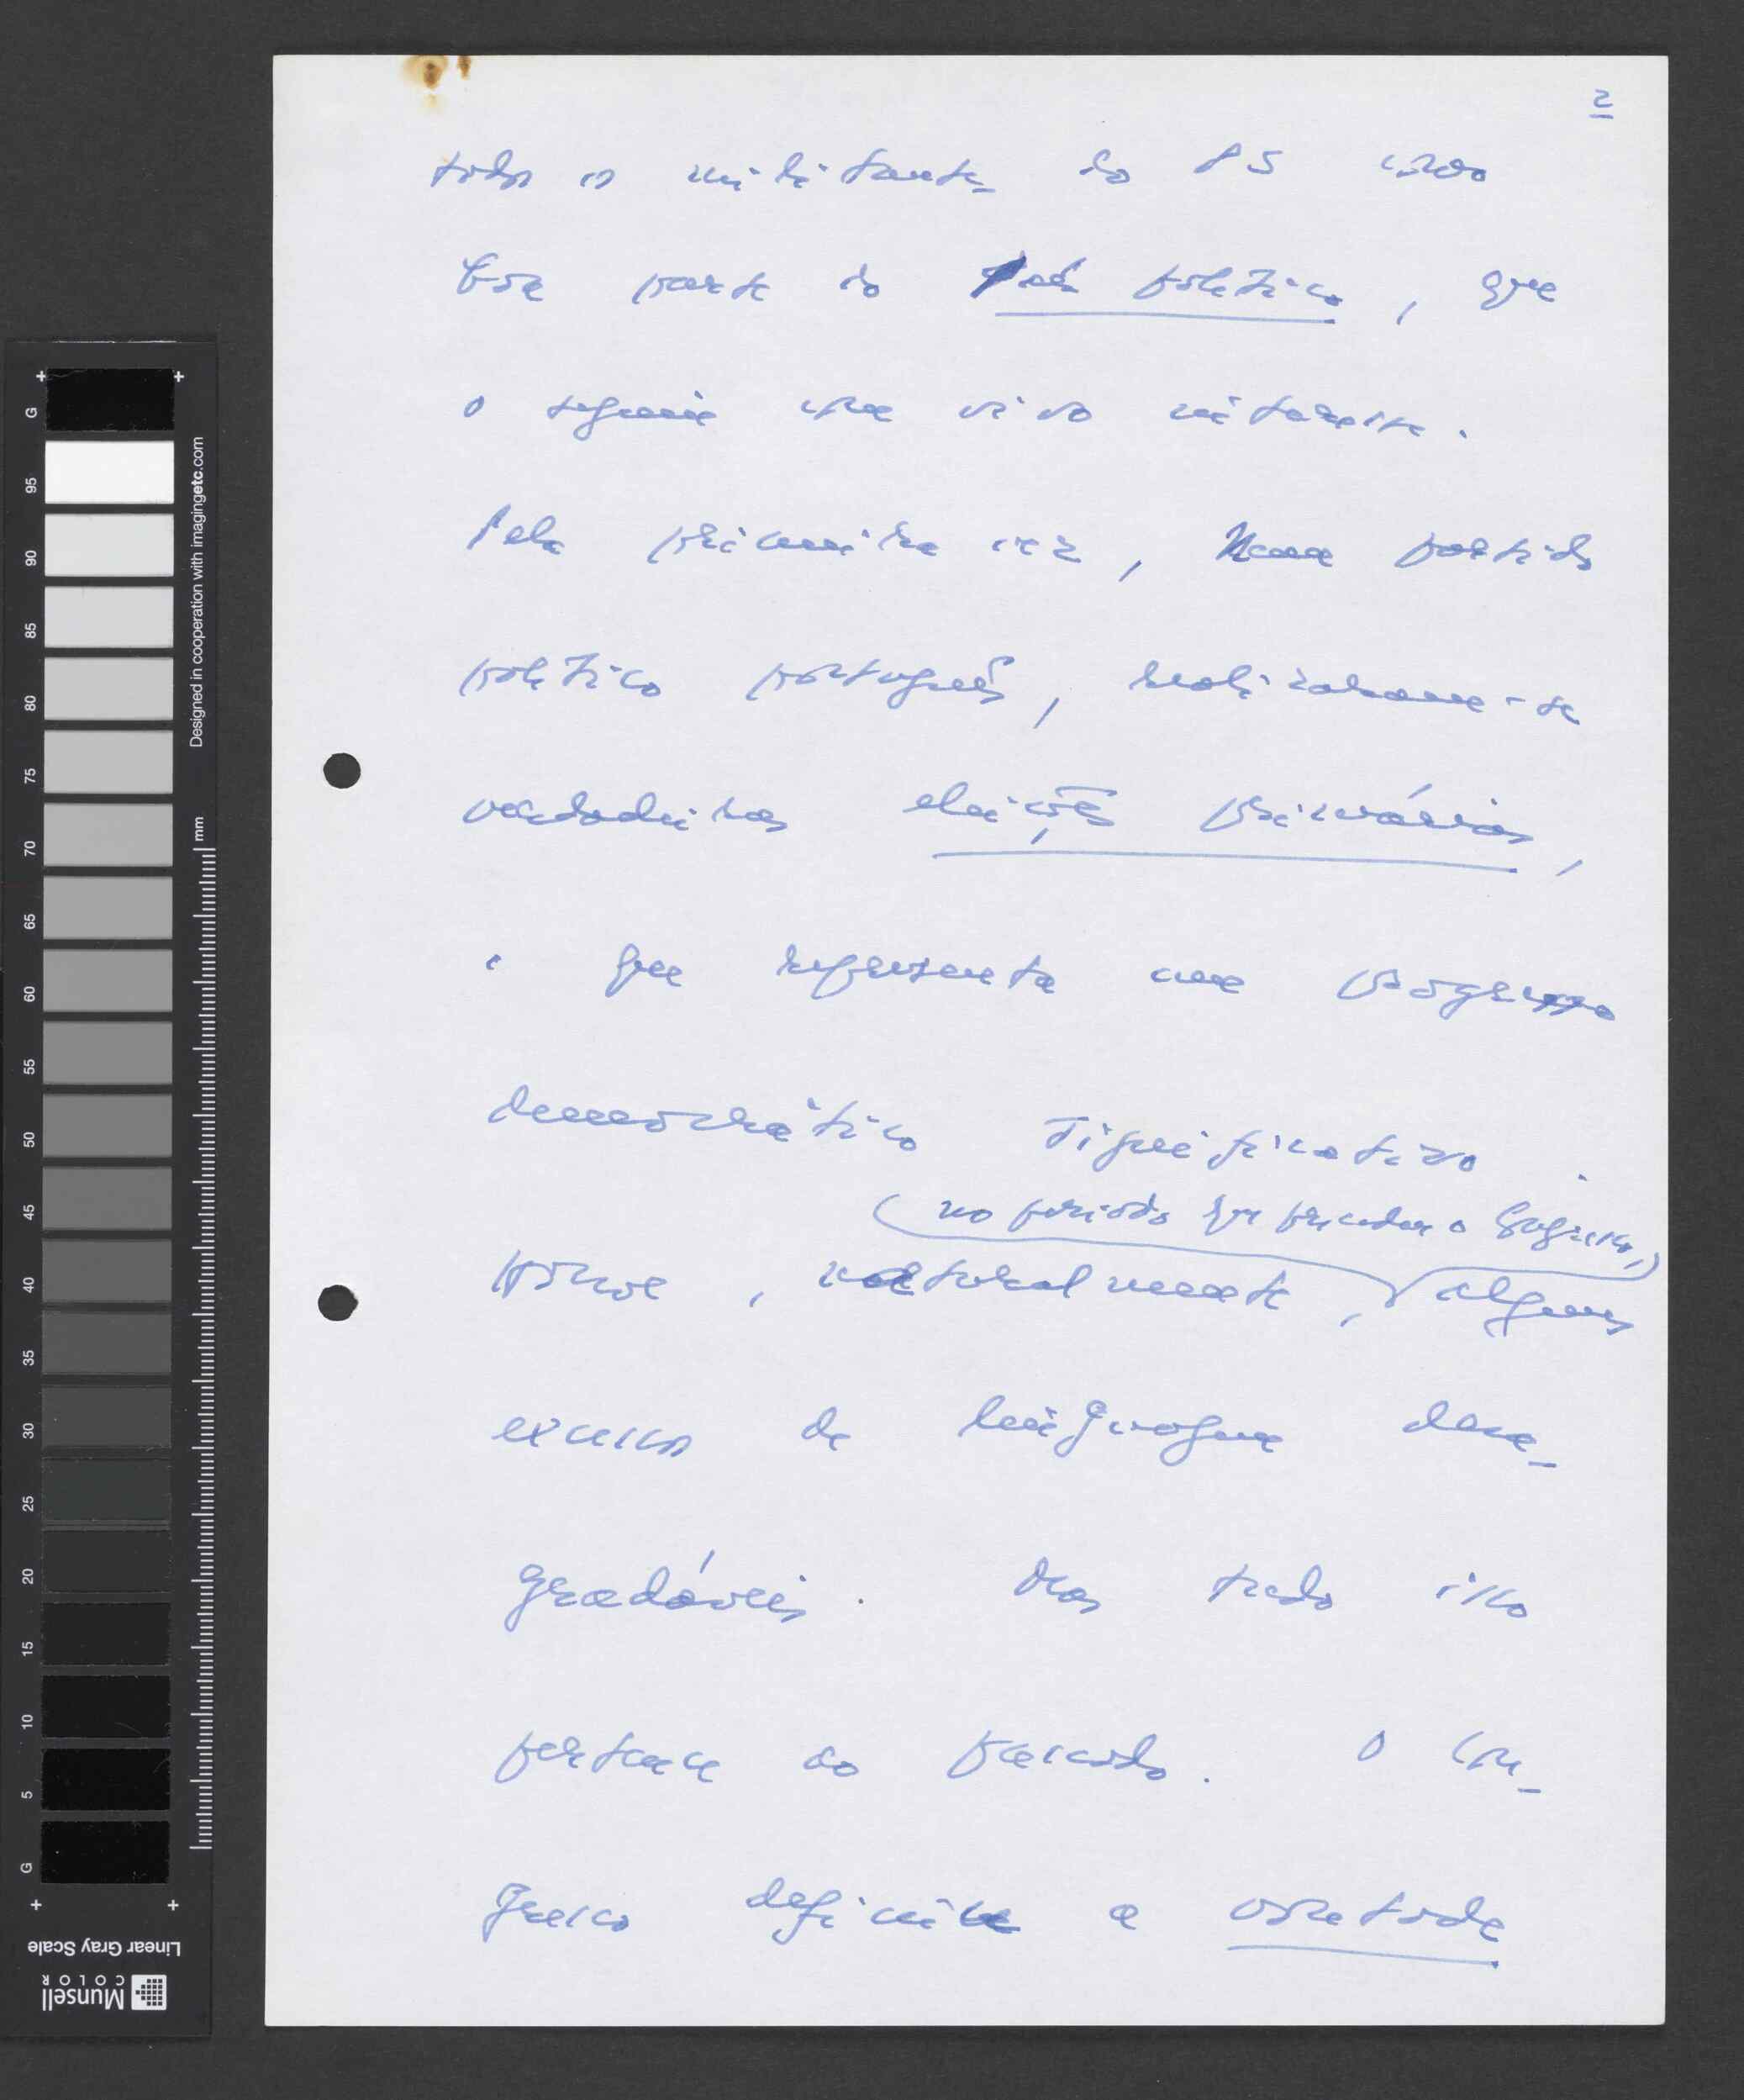 2
todos os militantes do PS como
boa parte do País político, que
o seguiu com vivo interesse.
Pela primeira vez, num partido
político português, realizaram-se
verdadeiras eleições primárias,
o que representa um progresso
democrático significativo.
(no período que precedeu o Congresso,)
Houve, naturalmente, alguns
excessos de linguagem desa-
gradáveis. Mas tudo isso
pertence ao passado. O Con-
gresso definiu a vontade
G
95
90
85
80
75
70
65
60
55
50
45
40
35
30
25
20
15
10
5
G
mm
Designed in cooperation with imagingetc.com
Linear Gray Scale
Munsell
COLOR